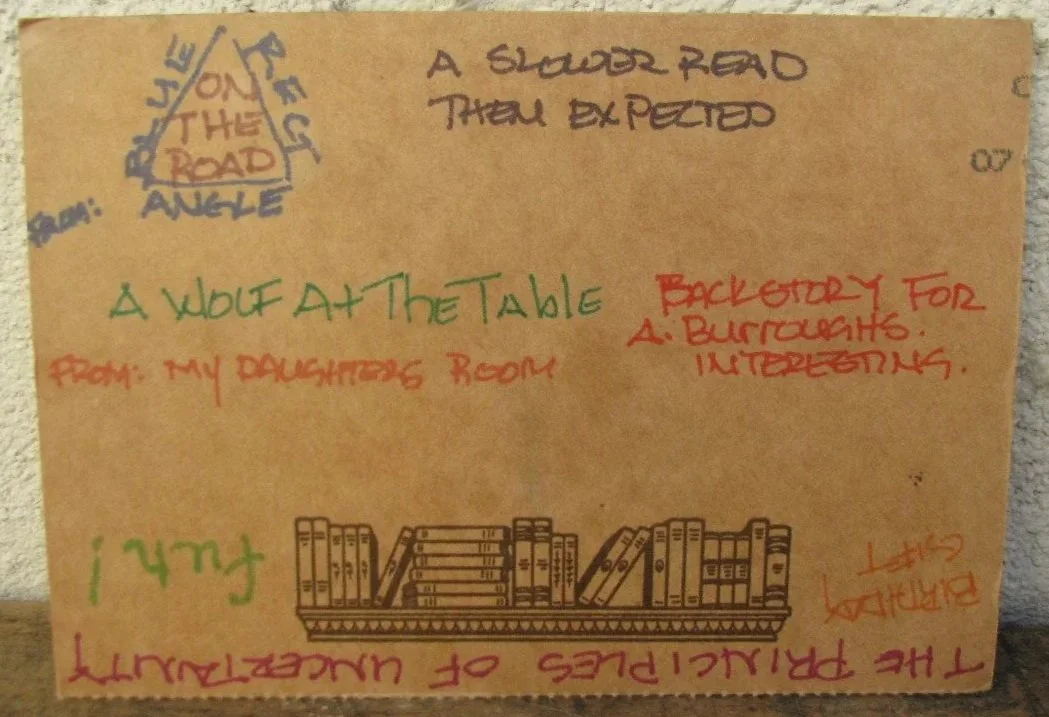 BLUE
RECT
ON
THE
ROAD
ANGLE
FROM:
A SLOWER READ
THEN EXPECTED
07
A WOLF At The Table
FROM: MY DAUGHTERS ROOM
BACKSTORY FOR
A. BURROUGHS.
INTERESTING.
THE PRINCIPLES OF UNCERTAINTY
BIRTHDAY
GIFT
fun!